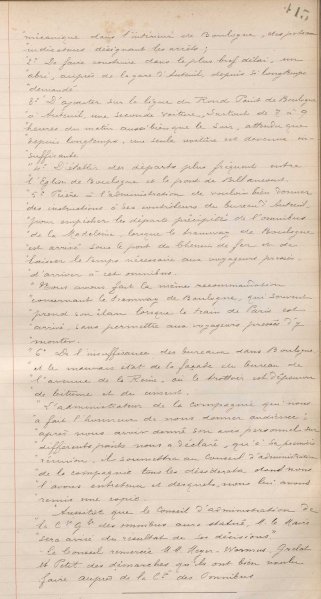 415
"mécanique dans l'intérieur de Boulogne, des poteaux
"indicateurs désignant les arrêts;
"2° De faire construire dans le plus bref délai, un
"abri, auprès de la gare d'Auteuil, depuis si longtemps
"demandé
"3° D'ajouter sur la ligne du Rond Point de Boulogne
"à Auteuil, une seconde voiture, surtout de 7 à 9
"heures du matin aussi bien que le soir, attendu que
"depuis longtemps, une seule voiture est devenue in-
"suffisante.
"4° D'établir des départs plus fréquents entre
"l'Eglise de Boulogne et le pont de Billancourt.
"5° Prière à l'administration de vouloir bien donner
"des instructions à ses contrôleurs du bureau d'Auteuil
"pour empêcher les départs précipités de l'omnibus
"de la Madeleine, lorsque le tramway de Boulogne
"est arrivé sous le pont du Chemin de fer et de
"laisser le temps nécessaire aux voyageurs pressés
"d'arriver à cet omnibus.
"Nous avons fait la même recommandation
"concernant le tramway de Boulogne, qui souvent
"prend son élan lorsque le train de Paris est
"arrivé, sans permettre aux voyageurs pressés d'y
"monter.
"6° De l'insuffisance des bureaux dans Boulogne,
"et le mauvais état de la façade du bureau de
"l'avenue de la Reine, où le trottoir est dépourvu
"de bitume et de ciment.
"L'administrateur de la Compagnie qui nous
"a fait l'honneur de nous donner audience,
"après nous avoir donné son avis personnel sur
"différents points nous a déclaré, qu'à sa première
"réunion, il soumettra au Conseil d'administration
"de la compagnie tous les désiderata dont nous
"l'avons entretenu et desquels, nous lui avons
"remis une copie.
"Aussitôt que le Conseil d'administration de
"la Cie Gle des omnibus aura statué, M. le Maire
"sera avisé du résultat de ses décisions"
Le Conseil remercie M.M.
et Petit des démarches qu'ils ont bien voulu
faire auprès de la Cie des Omnibus